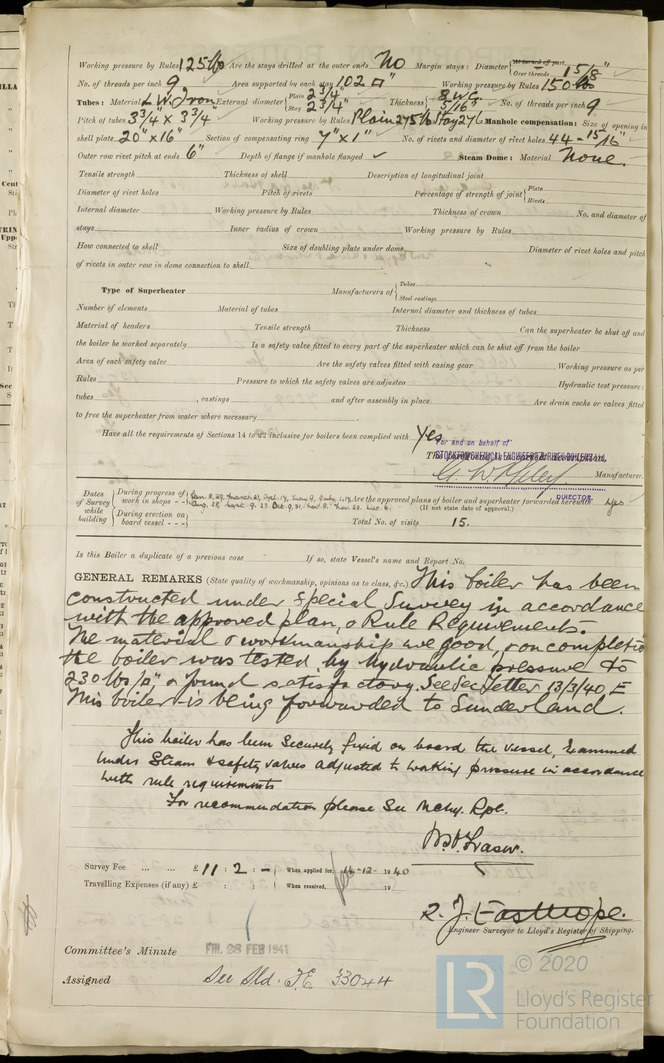 Working pressure by Rules 125 lb Are the stays drilled at the outer ends No Margin stays: Diameter { At turned off part, Over threads 1 5/8"
No. of threads per inch 9 Area supported by each stay 102 □" Working pressure by Rules 150 lbs
Tubes: Material L.W. Iron External diameter { Plain 2 3/4" Stay 2 3/4" Thickness { 8 W.G. 5/16" No. of threads per inch 9
Pitch of tubes 3 3/4" x 3 3/4" Working pressure by Rules Plain 275 lb Stay 276 Manhole compensation: Size of opening in
shell plate 20" x 16" Section of compensating ring 7" x 1" No. of rivets and diameter of rivet holes 44 - 15/16"
Outer row rivet pitch at ends 6" Depth of flange if manhole flanged ✓ Steam Dome: Material None.
Tensile strength Thickness of shell Description of longitudinal joint
Diameter of rivet holes Pitch of rivets Percentage of strength of joint { Plate Rivets
Internal diameter Working pressure by Rules Thickness of crown No. and diameter of
stays Inner radius of crown Working pressure by Rules
How connected to shell Size of doubling plate under dome Diameter of rivet holes and pitch
of rivets in outer row in dome connection to shell
Type of Superheater Manufacturers of { Tubes Steel castings
Number of elements Material of tubes Internal diameter and thickness of tubes
Material of headers Tensile strength Thickness Can the superheater be shut off and
the boiler be worked separately Is a safety valve fitted to every part of the superheater which can be shut off from the boiler
Area of each safety valve Are the safety valves fitted with easing gear Working pressure as per
Rules Pressure to which the safety valves are adjusted Hydraulic test pressure:
tubes , castings and after assembly in place Are drain cocks or valves fitted
to free the superheater from water where necessary
Have all the requirements of Sections 14 to 22 inclusive for boilers been complied with Yes
For and on behalf of
STOCKTON CHEMICAL ENGINEERS & RILEY BOILERS LTD.
G. W. Riley Manufacturer.
DIRECTOR.
Dates of Survey while building { During progress of work in shops - - During erection on board vessel - - -
Are the approved plans of boiler and superheater forwarded herewith Yes
(If not state date of approval.)
Total No. of visits 15.
Is this Boiler a duplicate of a previous case If so, state Vessel's name and Report No.
GENERAL REMARKS (State quality of workmanship, opinions as to class, &c.) This boiler has been
constructed under Special Survey in accordance
with the approved plan, & Rule Requirements.
The material & workmanship are good, & on completion
the boiler was tested by hydraulic pressure to
230 lbs/□" & found satisfactory. See Sec. Letter 13/3/40, E
This boiler is being forwarded to Sunderland.
This boiler has been securely fixed on board the vessel, examined
under steam & safety valves adjusted to working pressure in accordance
with rule requirements
For recommendation please see Mchy. Rpt.
Fraser.
Survey Fee ... ... £ 11 : 2 : - When applied for, 14-12- 1940
Travelling Expenses (if any) £ : : When received, 19
R. J. Easthope.
Engineer Surveyor to Lloyd's Register of Shipping.
Committee's Minute FRI. 28 FEB 1941
Assigned See Sld. F.E. 33044
LR © 2020
Lloyd's Register
Foundation